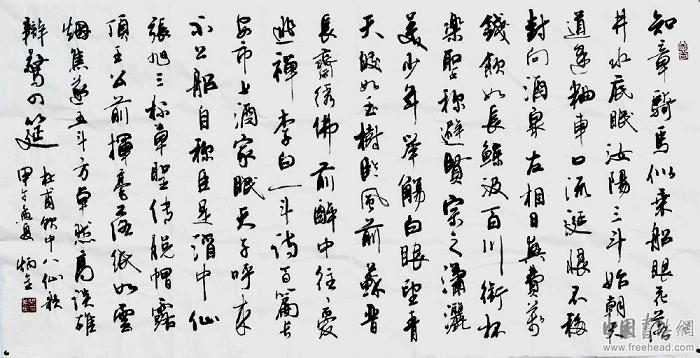 知章騎馬似乘船眼花落
井水底眠汝陽三斗始朝天
道逢麯車口流涎恨不移
封向酒泉左相日興費萬
錢飲如長鯨汲百川銜杯
樂聖稱避賢宗之瀟灑
美少年舉觴白眼望青
天皎如玉樹臨風前蘇晉
長齋繡佛前醉中往々愛
逃禪李白一斗詩百篇長
安市上酒家眠天子呼來
不上船自稱臣是酒中仙
張旭三杯草聖傳脫帽露
頂王公前揮毫落紙如雲
烟焦遂五斗方卓然高談雄
辯驚四筵
杜甫飲中八仙歌
甲午夏
www.freehead.com